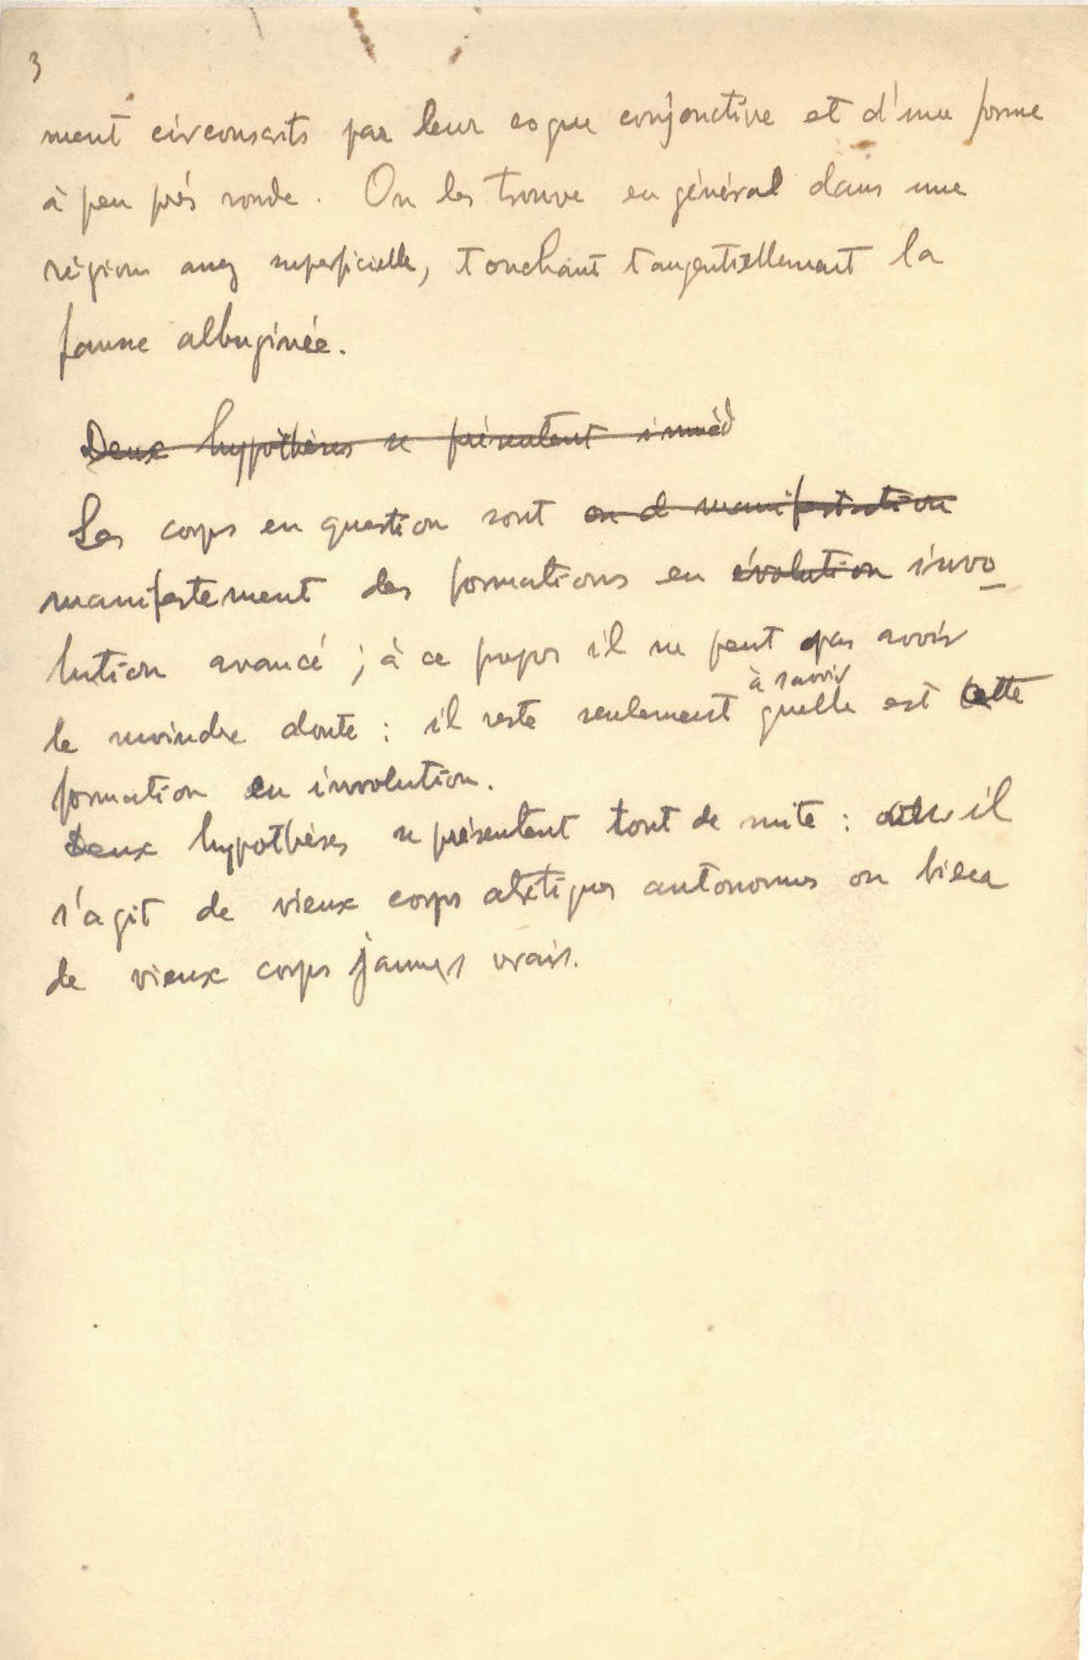 3
ment circonscrits par leur coque conjonctive et d'une forme
à peu près ronde. On les trouve en général dans une
région assez superficielle, touchant tangentiellement la
fausse albuginée.
Deux hypothèses se présentent imméd
Les corps en question sont en d manifestation
manifestement des formations en évolution invo
lution avancé ; à ce propos il ne peut pas avoir
à savoir
le moindre doute : il reste seulement quelle est cette
formation en involution.
Deux hypothèses se présentent tout de suite : ou il
s'agit de vieux corps atrétiques autonomes ou bien
de vieux corps jaunes vrais.